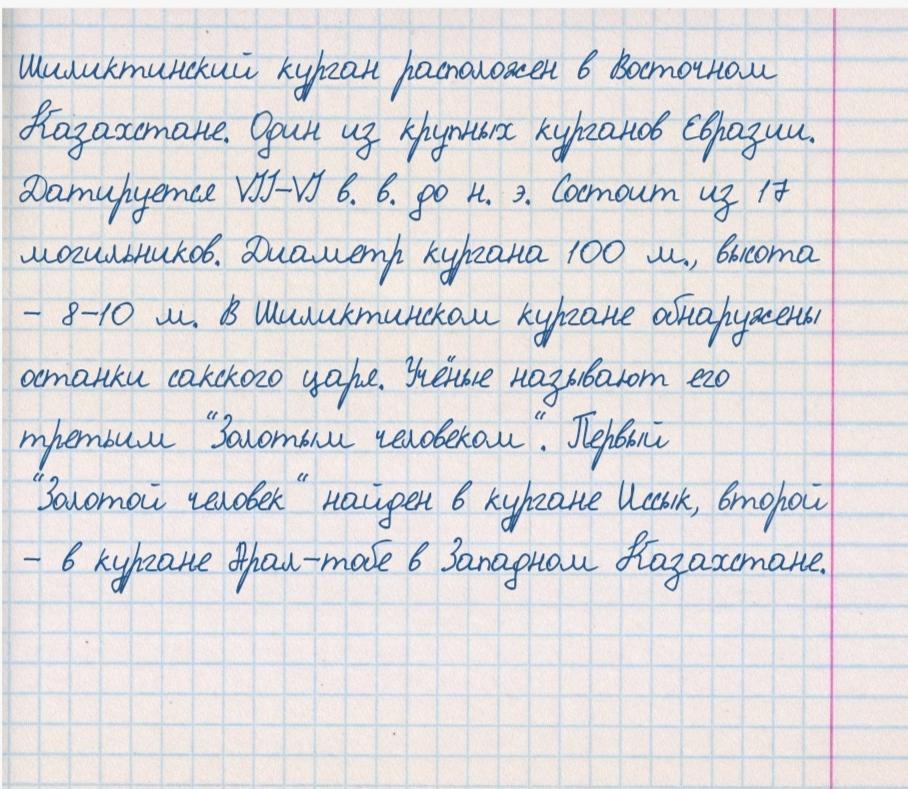 Шиликтинский курган расположен в Восточном
Казахстане. Один из крупных курганов Евразии.
Датируется VII-VI в. в. до н. э. Состоит из 17
могильников. Диаметр кургана 100 м., высота
- 8-10 м. В Шиликтинском кургане обнаружены
останки сакского царя. Учёные называют его
третьим "Золотым человеком". Первый
"Золотой человек" найден в кургане Иссык, второй
- в кургане Арал-тобе в Западном Казахстане.